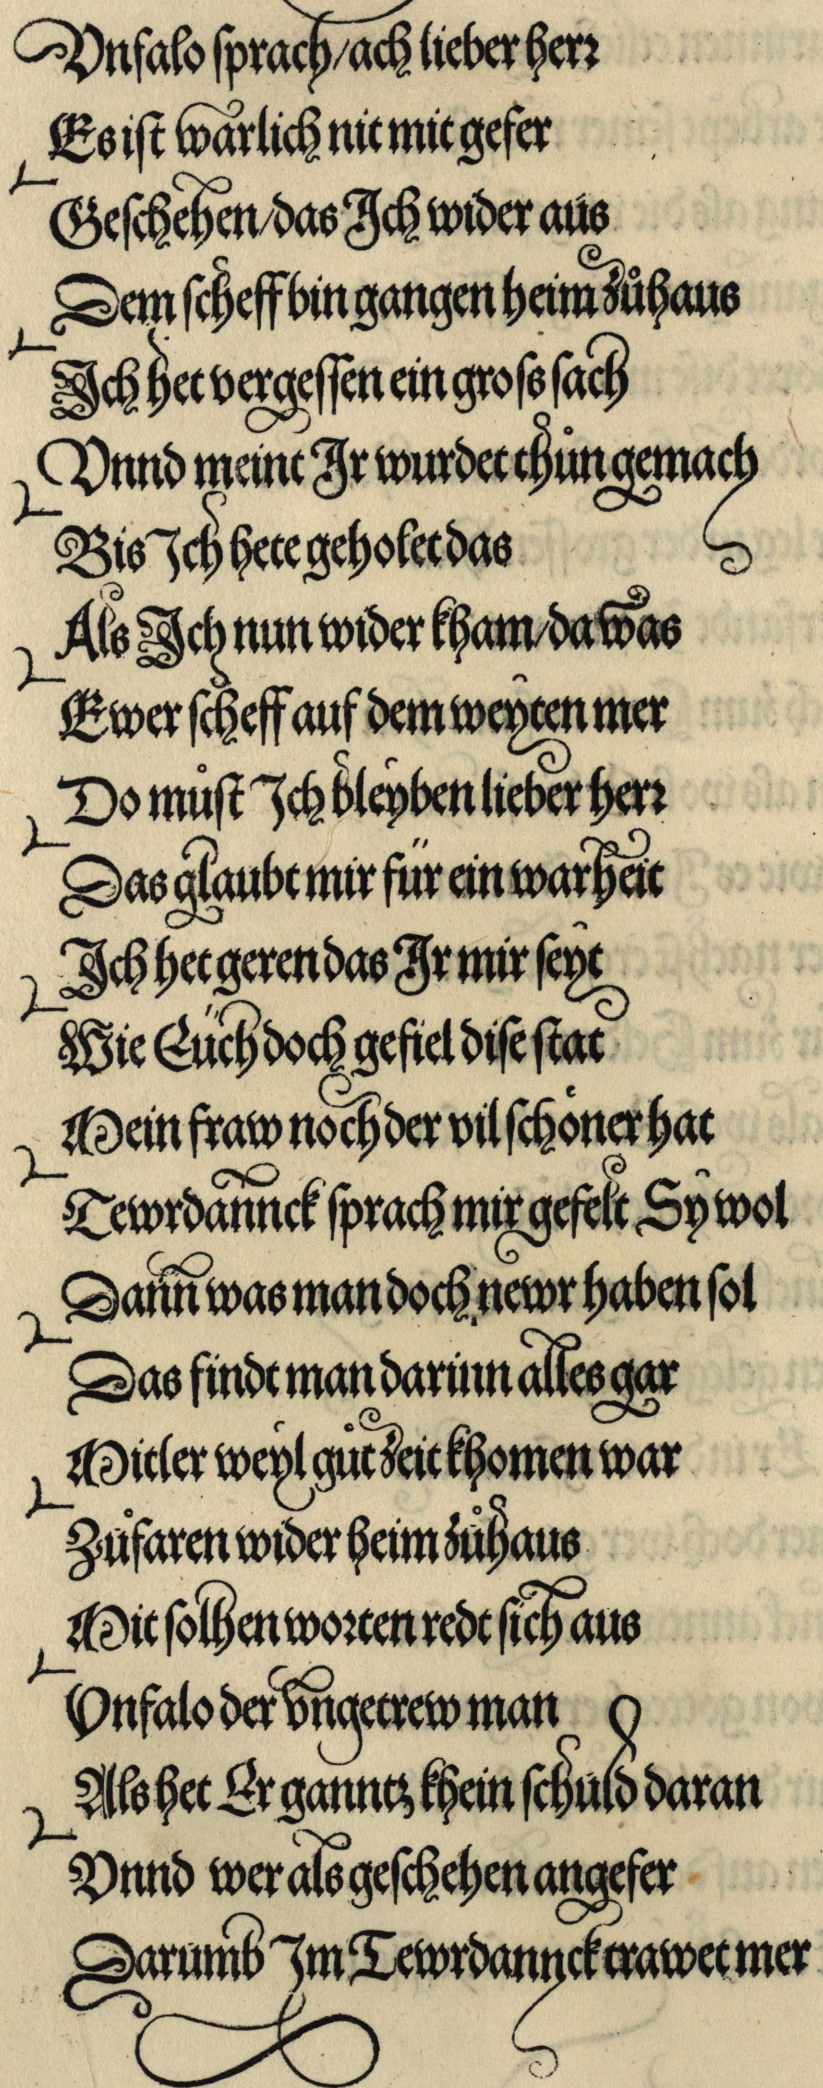 Vnfalo sprach/ach lieber herr
Es ist warlich nit mit gefer
Geschehen/das Ich wider aus
Dem scheff bin gangen heim zůhaus
Ich het vergessen ein gross sach
Vnnd meint Ir wurdet thůn gemach
Bis Ich hete geholet das
Als Ich nun wider kham/da was
Ewer scheff auf dem weyten mer
Do můst Ich bleyben lieber herr
Das glaubt mir für ein warheit
Ich het geren das Ir mir seyt
Wie Eüch doch gefiel dise stat
Mein fraw noch der vil schöner hat
Tewrdannck sprach mir gefelt Sy wol
Dann was man doch newr haben sol
Das findt man darinn alles gar
Mitler weyl gůt zeit khomen war
Zůfaren wider heim zůhaus
Mit solhen worten redt sich aus
Vnfalo der vngetrew man
Als het Er ganntz khein schuld daran
Vnnd wer als geschehen angefer
Darumb Im Tewrdannck trawet mer